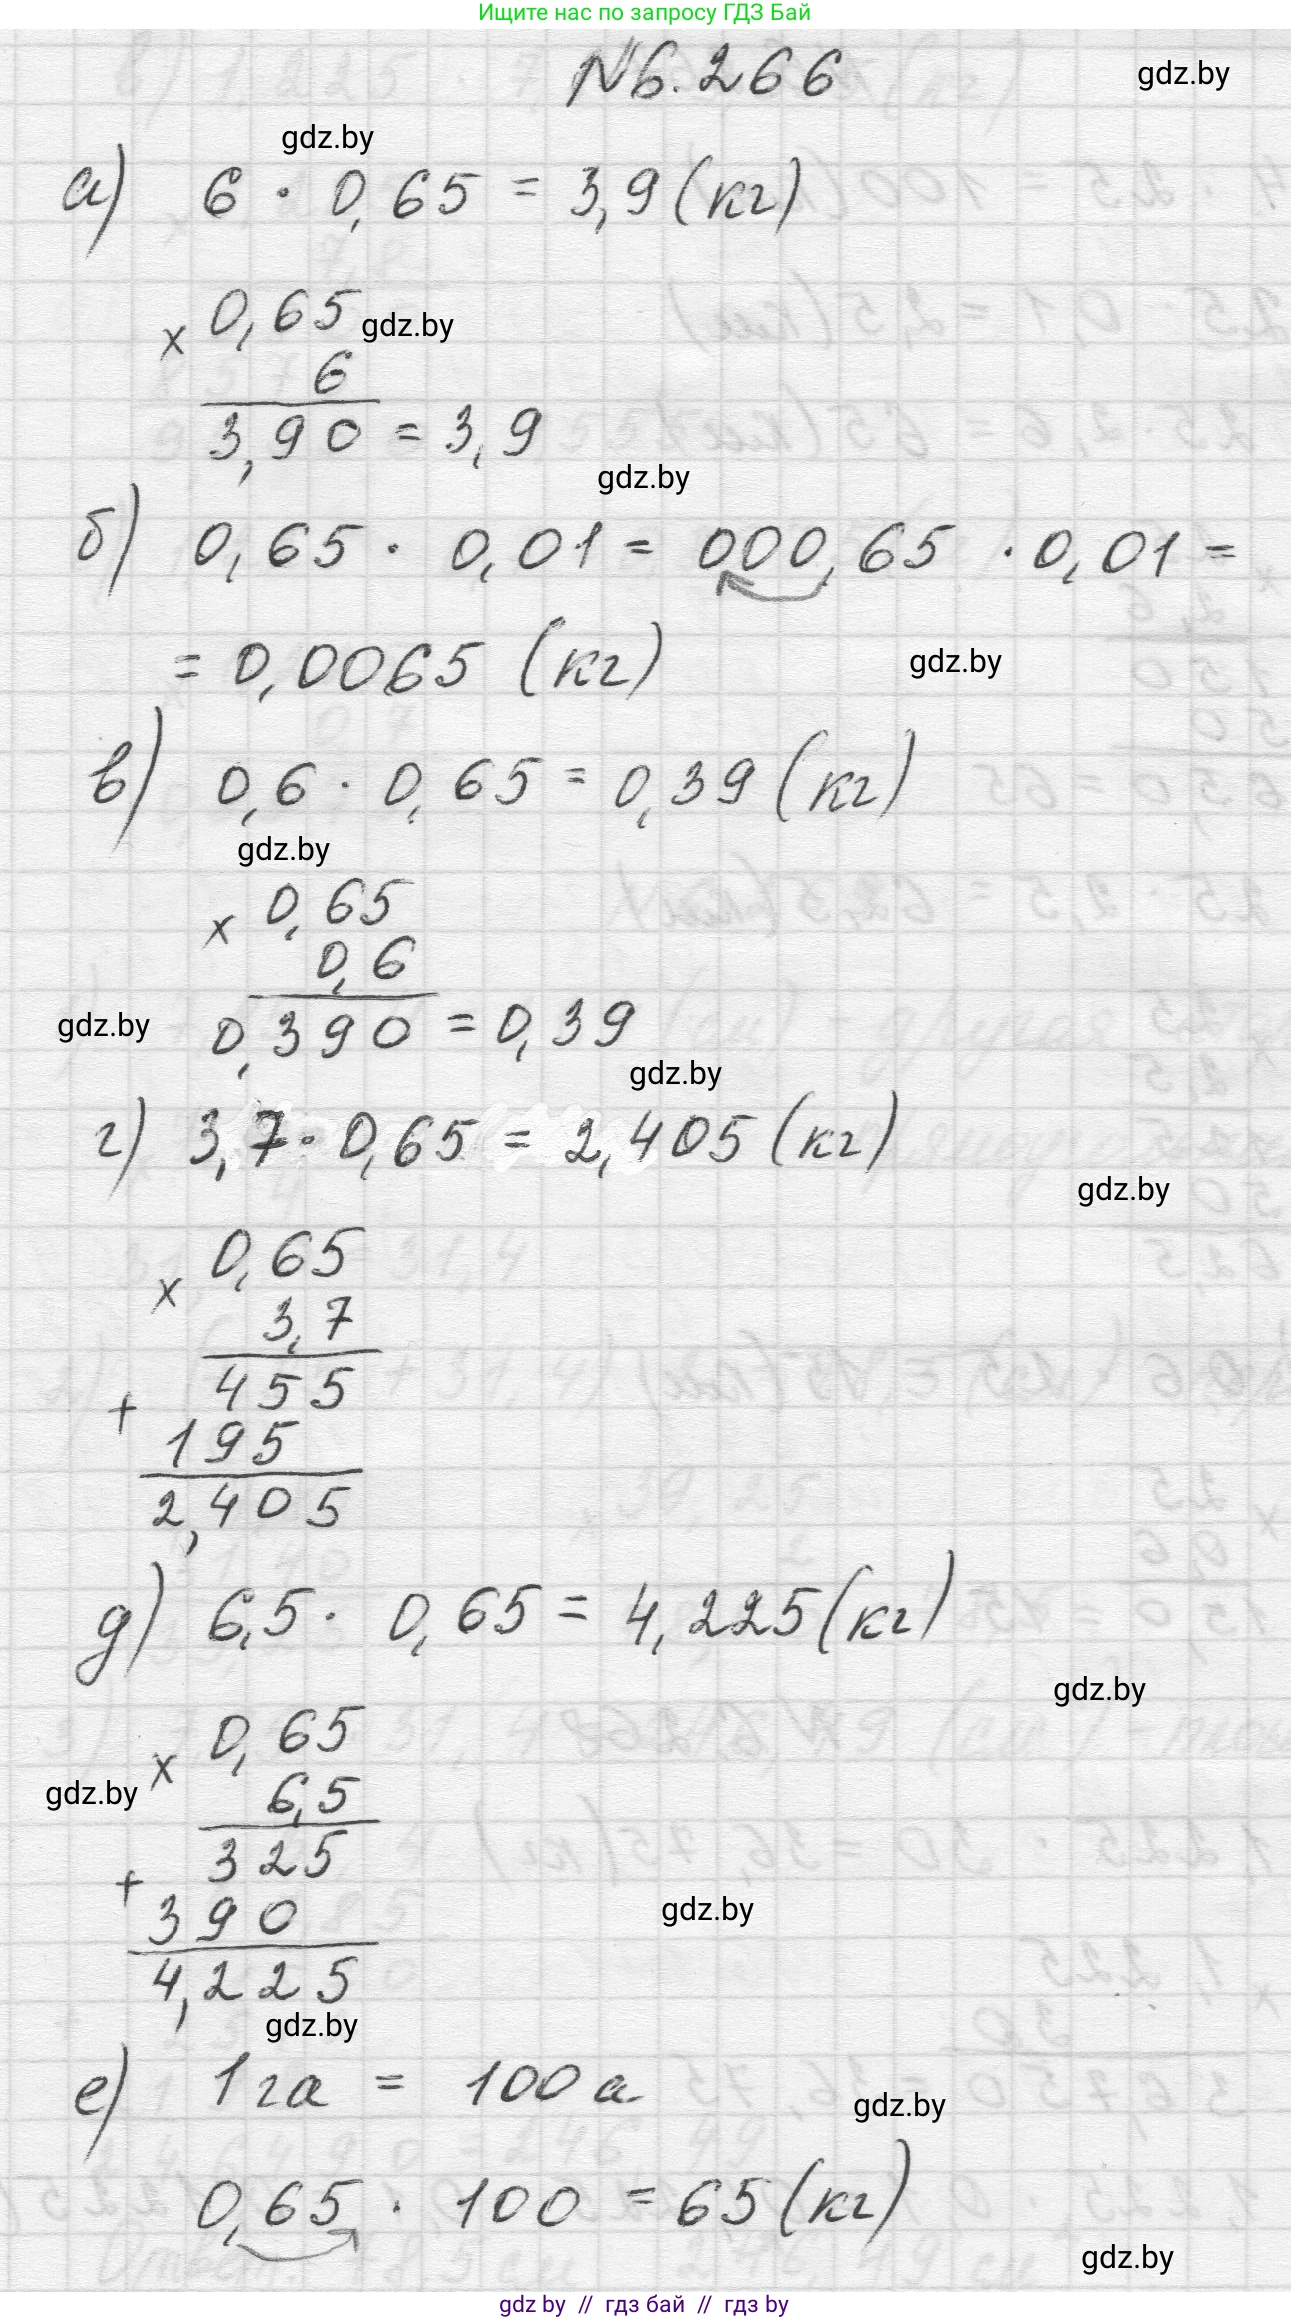 Ищите нас по запросу ГДЗ Бай
№6.266
gdz.by
gdz.by
а) 6 · 0,65 = 3,9 (кг)
× 0,65
gdz.by
6
3,90 = 3,9
gdz.by
б) 0,65 · 0,01 = 000,65 · 0,01 =
= 0,0065 (кг)
gdz.by
в) 0,6 · 0,65 = 0,39 (кг)
gdz.by
× 0,65
0,6
gdz.by
0,390 = 0,39
gdz.by
г) 3,7 · 0,65 = 2,405 (кг)
gdz.by
× 0,65
3,7
455
+
195
2,405
д) 6,5 · 0,65 = 4,225 (кг)
gdz.by
× 0,65
gdz.by
6,5
325
+
390
gdz.by
4,225
gdz.by
е) 1 га = 100 а
gdz.by
0,65 · 100 = 65 (кг)
gdz.by
gdz by // гдз бай // гдз by